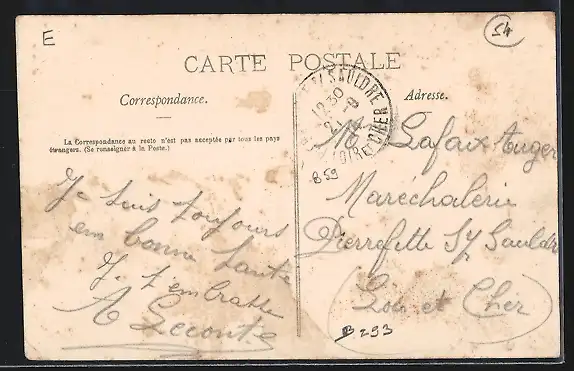 E
54
CARTE POSTALE
Correspondance.
Adresse.
La Correspondance au recto n'est pas acceptée par tous les pays
étrangers. (Se renseigner à la Poste.)
S/SAULDRE
12 30
8
LOIR ET CHER
Je suis toujours
en bonne santé
Je t'embrasse
A Leconte
Lafaix Auger
Maréchalerie
Pierrefitte S/ Sauldre
(Loir et Cher)
859
B 293